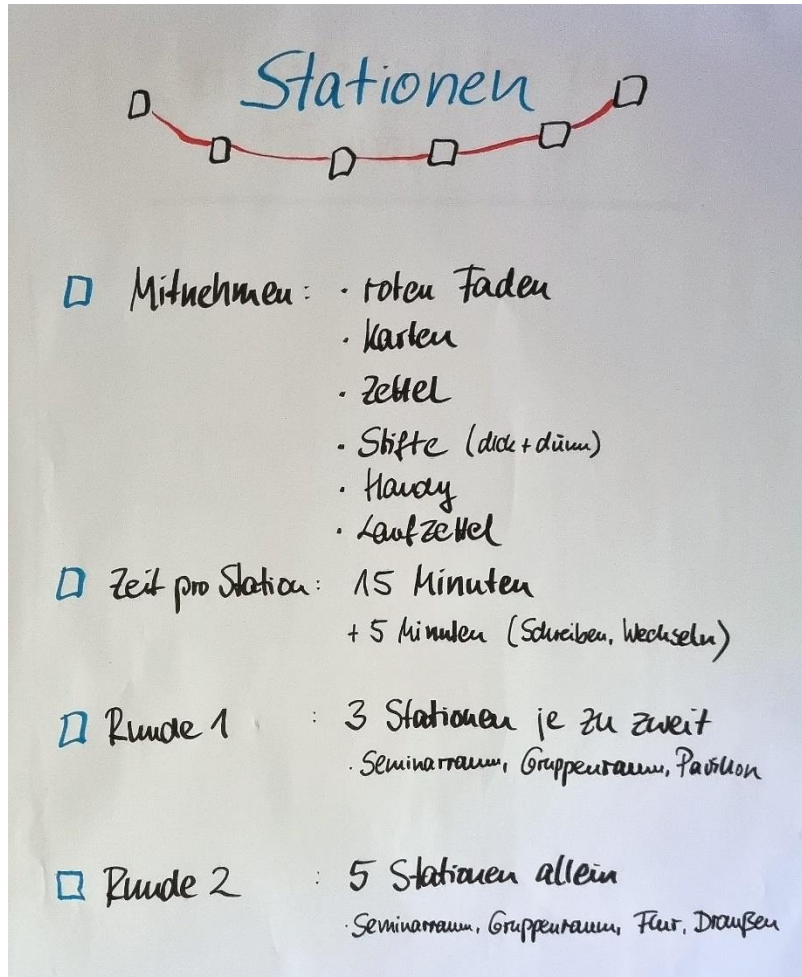 Stationen
Mitnehmen: · roten Faden
· Karten
· Zettel
· Stifte (dick + dünn)
· Handy
· Laufzettel
Zeit pro Station: 15 Minuten
+ 5 Minuten (Schreiben, Wechseln)
Runde 1 : 3 Stationen je zu zweit
· Seminarraum, Gruppenraum, Pavillon
Runde 2 : 5 Stationen allein
· Seminarraum, Gruppenraum, Flur, Draußen